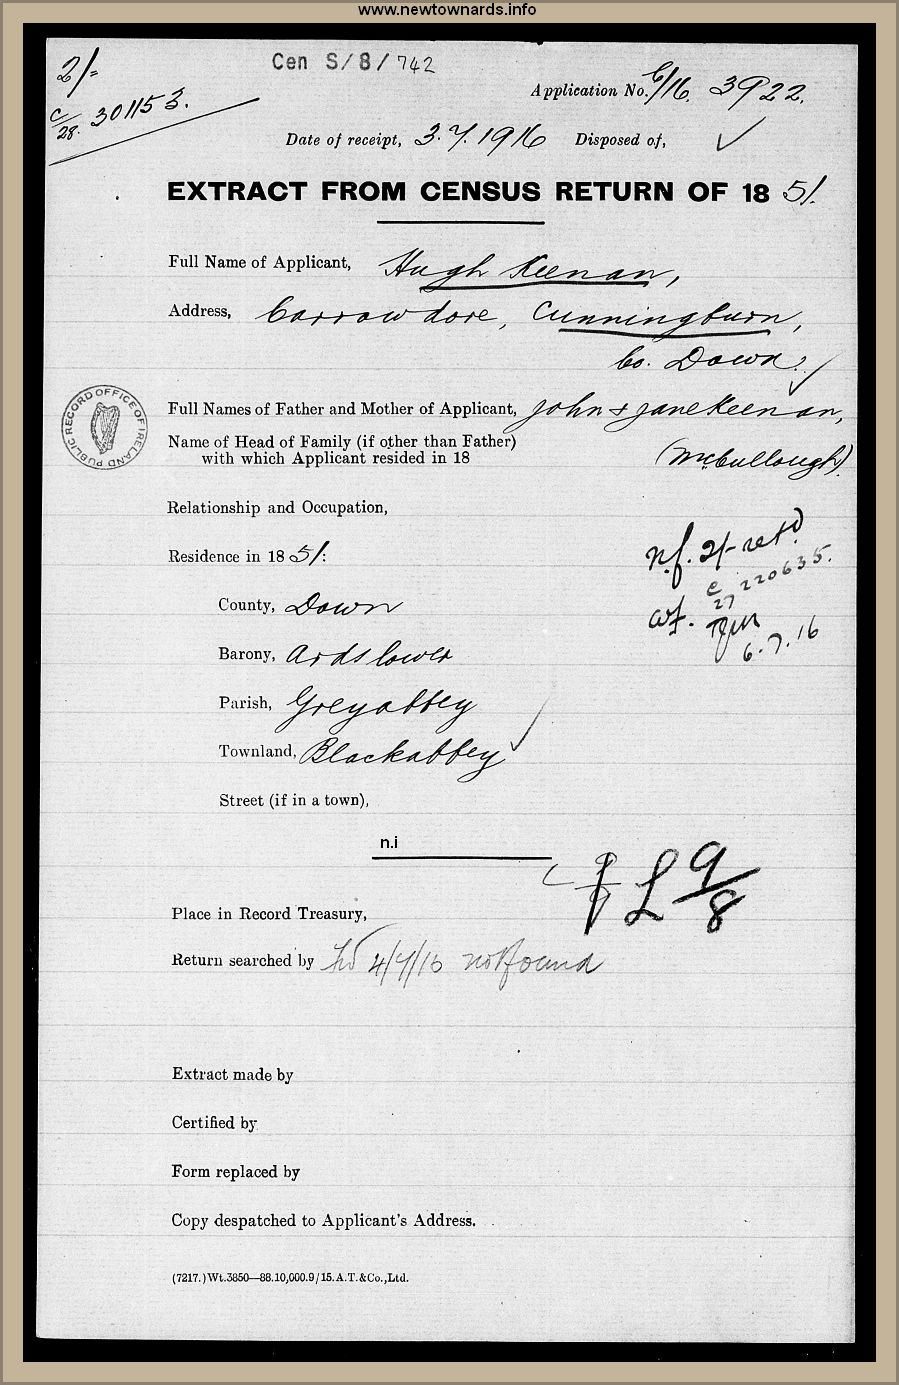 www.newtownards.info
Cen S/8/742
2/=
C/28. 301153.
Application No. C/16. 3922.
Date of receipt, 3.7.1916 Disposed of,
EXTRACT FROM CENSUS RETURN OF 18 51.
Full Name of Applicant, Hugh Keenan,
Address, Carrowdore, Cunningburn,
Co. Down.
PUBLIC RECORD OFFICE OF IRELAND
Full Names of Father and Mother of Applicant, John & Jane Keenan,
Name of Head of Family (if other than Father)
with which Applicant resided in 18
(McCullough).
Relationship and Occupation,
Residence in 18 51:
n.f. 2/- retd
C/27 220635.
6.7.16
County, Down
Barony, Ards lower
Parish, Greyabbey
Townland, Blackabbey
Street (if in a town),
n.i
L 9/8
Place in Record Treasury,
Return searched by 4/7/16 not found
Extract made by
Certified by
Form replaced by
Copy despatched to Applicant's Address.
(7217.)Wt.3850—88.10,000.9/15.A.T.&Co.,Ltd.